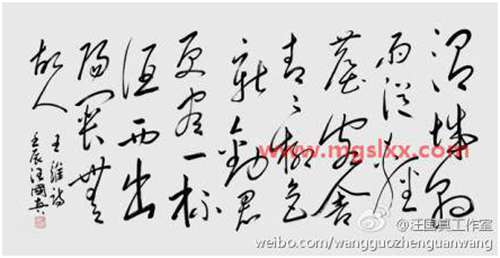 渭城朝
雨浥輕
塵客舍
青々柳色
新勸君
更盡一杯
酒西出
陽關無
故人
王維詩
壬辰汪國真
www.mgslxx.com
@汪国真工作室
weibo.com/wangguozhenguanwang